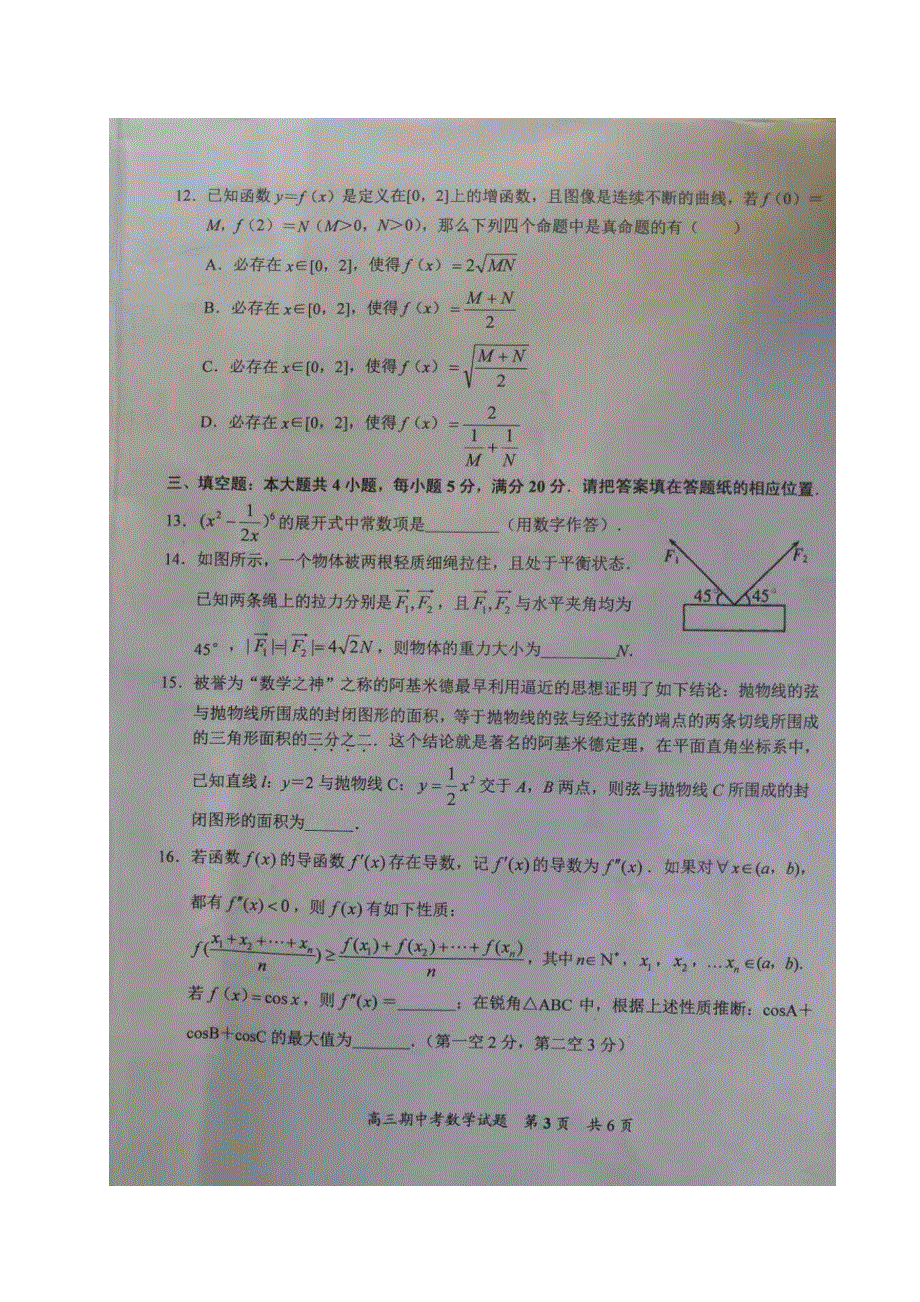 12．已知函数 y＝f（x）是定义在[0，2]上的增函数，且图像是连续不断的曲线，若 f（0）＝
M，f（2）＝N（M＞0，N＞0），那么下列四个命题中是真命题的有（　　）
A．必存在 x∈[0，2]，使得 f（x）＝2√MN
B．必存在 x∈[0，2]，使得 f（x）＝(M+N)/2
C．必存在 x∈[0，2]，使得 f（x）＝√((M+N)/2)
D．必存在 x∈[0，2]，使得 f（x）＝2/(1/M+1/N)
三、填空题：本大题共 4 小题，每小题 5 分，满分 20 分．请把答案填在答题纸的相应位置．
13．(x² − 1/2x)⁶ 的展开式中常数项是________（用数字作答）．
14．如图所示，一个物体被两根轻质细绳拉住，且处于平衡状态．
F₁ F₂
已知两条绳上的拉力分别是 F₁, F₂，且 F₁, F₂ 与水平夹角均为
45° 45°
45°，|F₁|=|F₂|=4√2N，则物体的重力大小为________N．
15．被誉为“数学之神”之称的阿基米德最早利用逼近的思想证明了如下结论：抛物线的弦
与抛物线所围成的封闭图形的面积，等于抛物线的弦与经过弦的端点的两条切线所围成
的三角形面积的三分之二．这个结论就是著名的阿基米德定理，在平面直角坐标系中，
已知直线 l：y＝2 与抛物线 C：y = 1/2 x² 交于 A，B 两点，则弦与抛物线 C 所围成的封
闭图形的面积为______．
16．若函数 f(x) 的导函数 f′(x) 存在导数，记 f′(x) 的导数为 f″(x)．如果对∀x∈(a，b)，
都有 f″(x)<0，则 f(x) 有如下性质：
f((x₁+x₂+⋯+xₙ)/n) ≥ (f(x₁)+f(x₂)+⋯+f(xₙ))/n，其中 n∈N*，x₁，x₂，…xₙ∈(a，b)．
若 f（x）=cos x，则 f″(x) =______；在锐角△ABC 中，根据上述性质推断：cosA＋
cosB＋cosC 的最大值为______．（第一空 2 分，第二空 3 分）
高三期中考数学试题 第 3 页 共 6 页